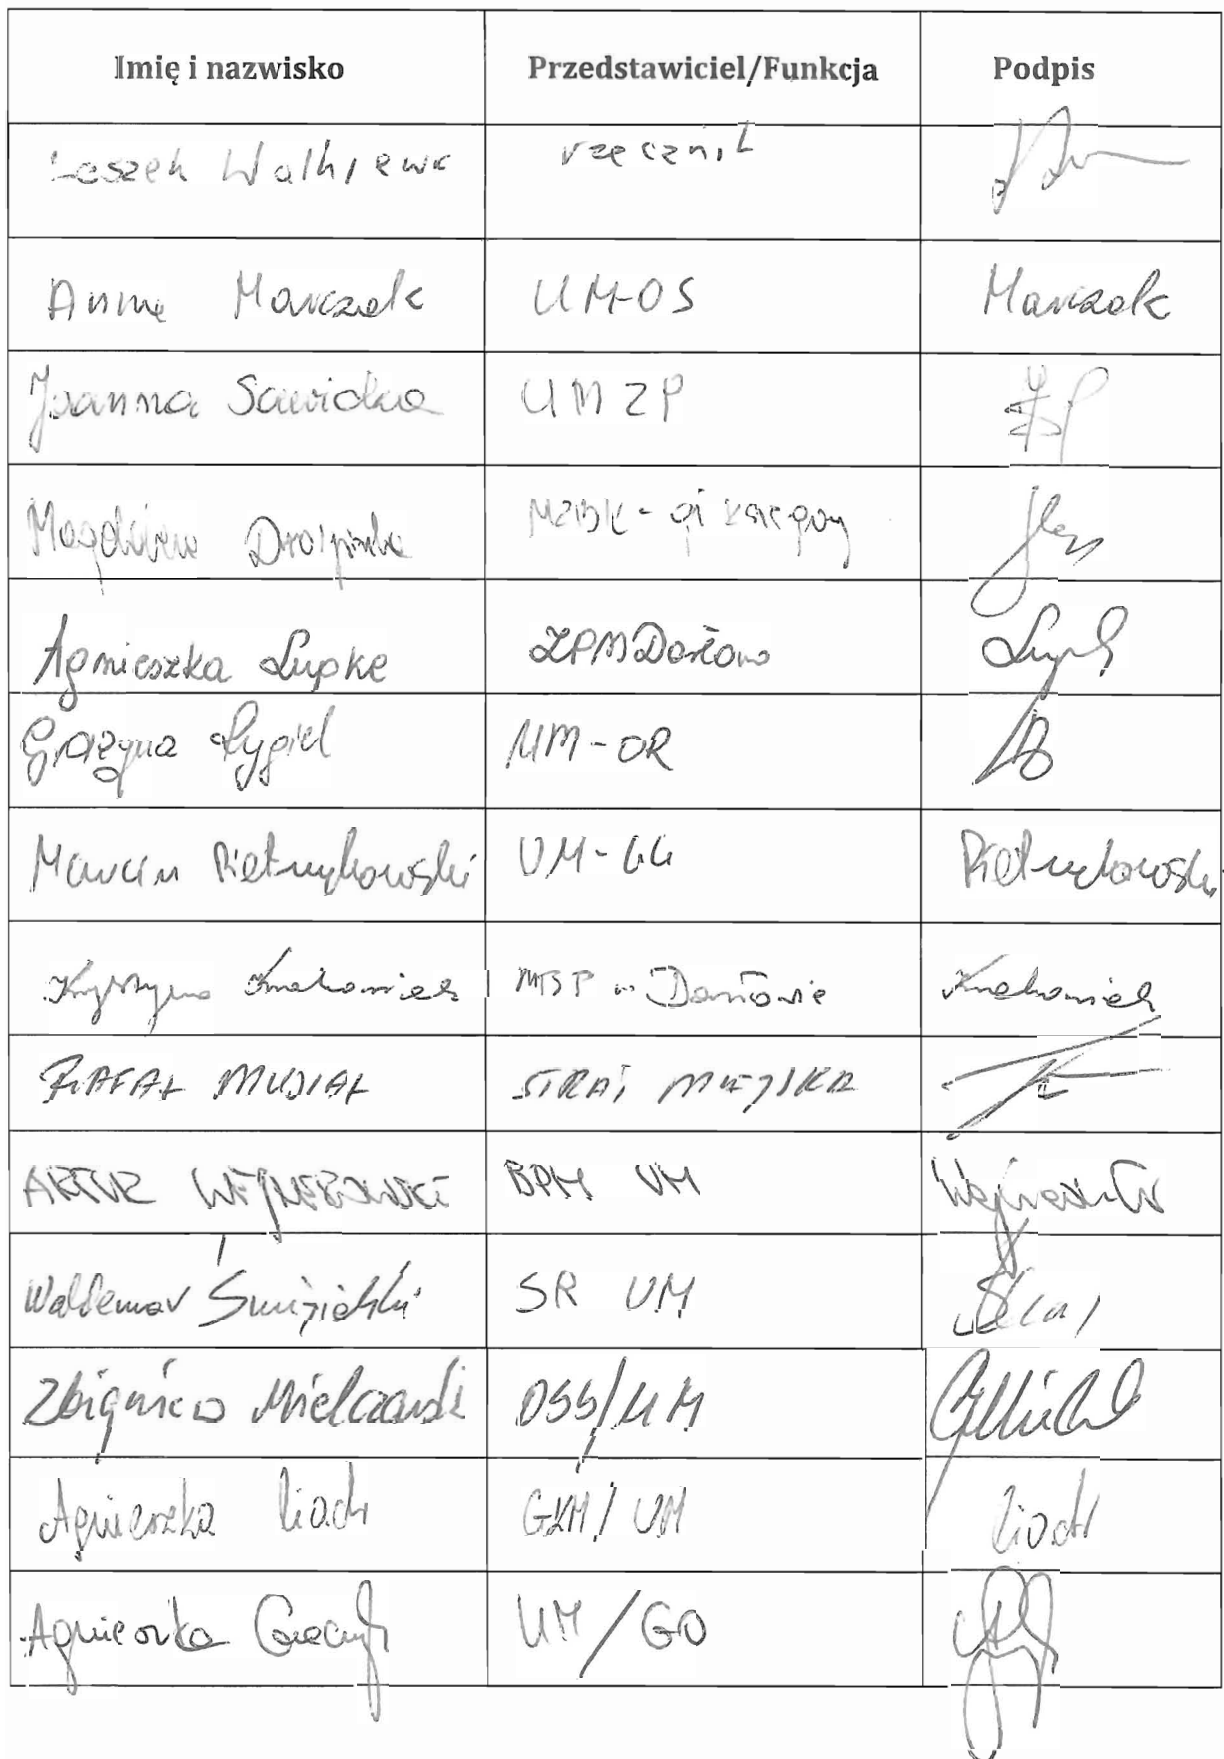 Imię i nazwisko Przedstawiciel/Funkcja Podpis
Leszek Walkiewicz rzecznik
Anna Marczak UM-OS Marczak
Joanna Sawicka UM ZP
Magdalena MZBK - gł księgowy
Agnieszka Lupke ZPM Darłowo
Grażyna Łygiel UM-OR
Marcin Pietrzykowski UM-GG Pietrzykowski
Krystyna MBP w Darłowie
RAFAŁ MUSIAŁ STRAŻ MIEJSKA
ARTUR WEJNEROWSKI BPM UM
Waldemar Śmigielski SR UM
Zbigniew Mielczarski OSS/UM
Agnieszka GKM/UM
Agnieszka UM/GO